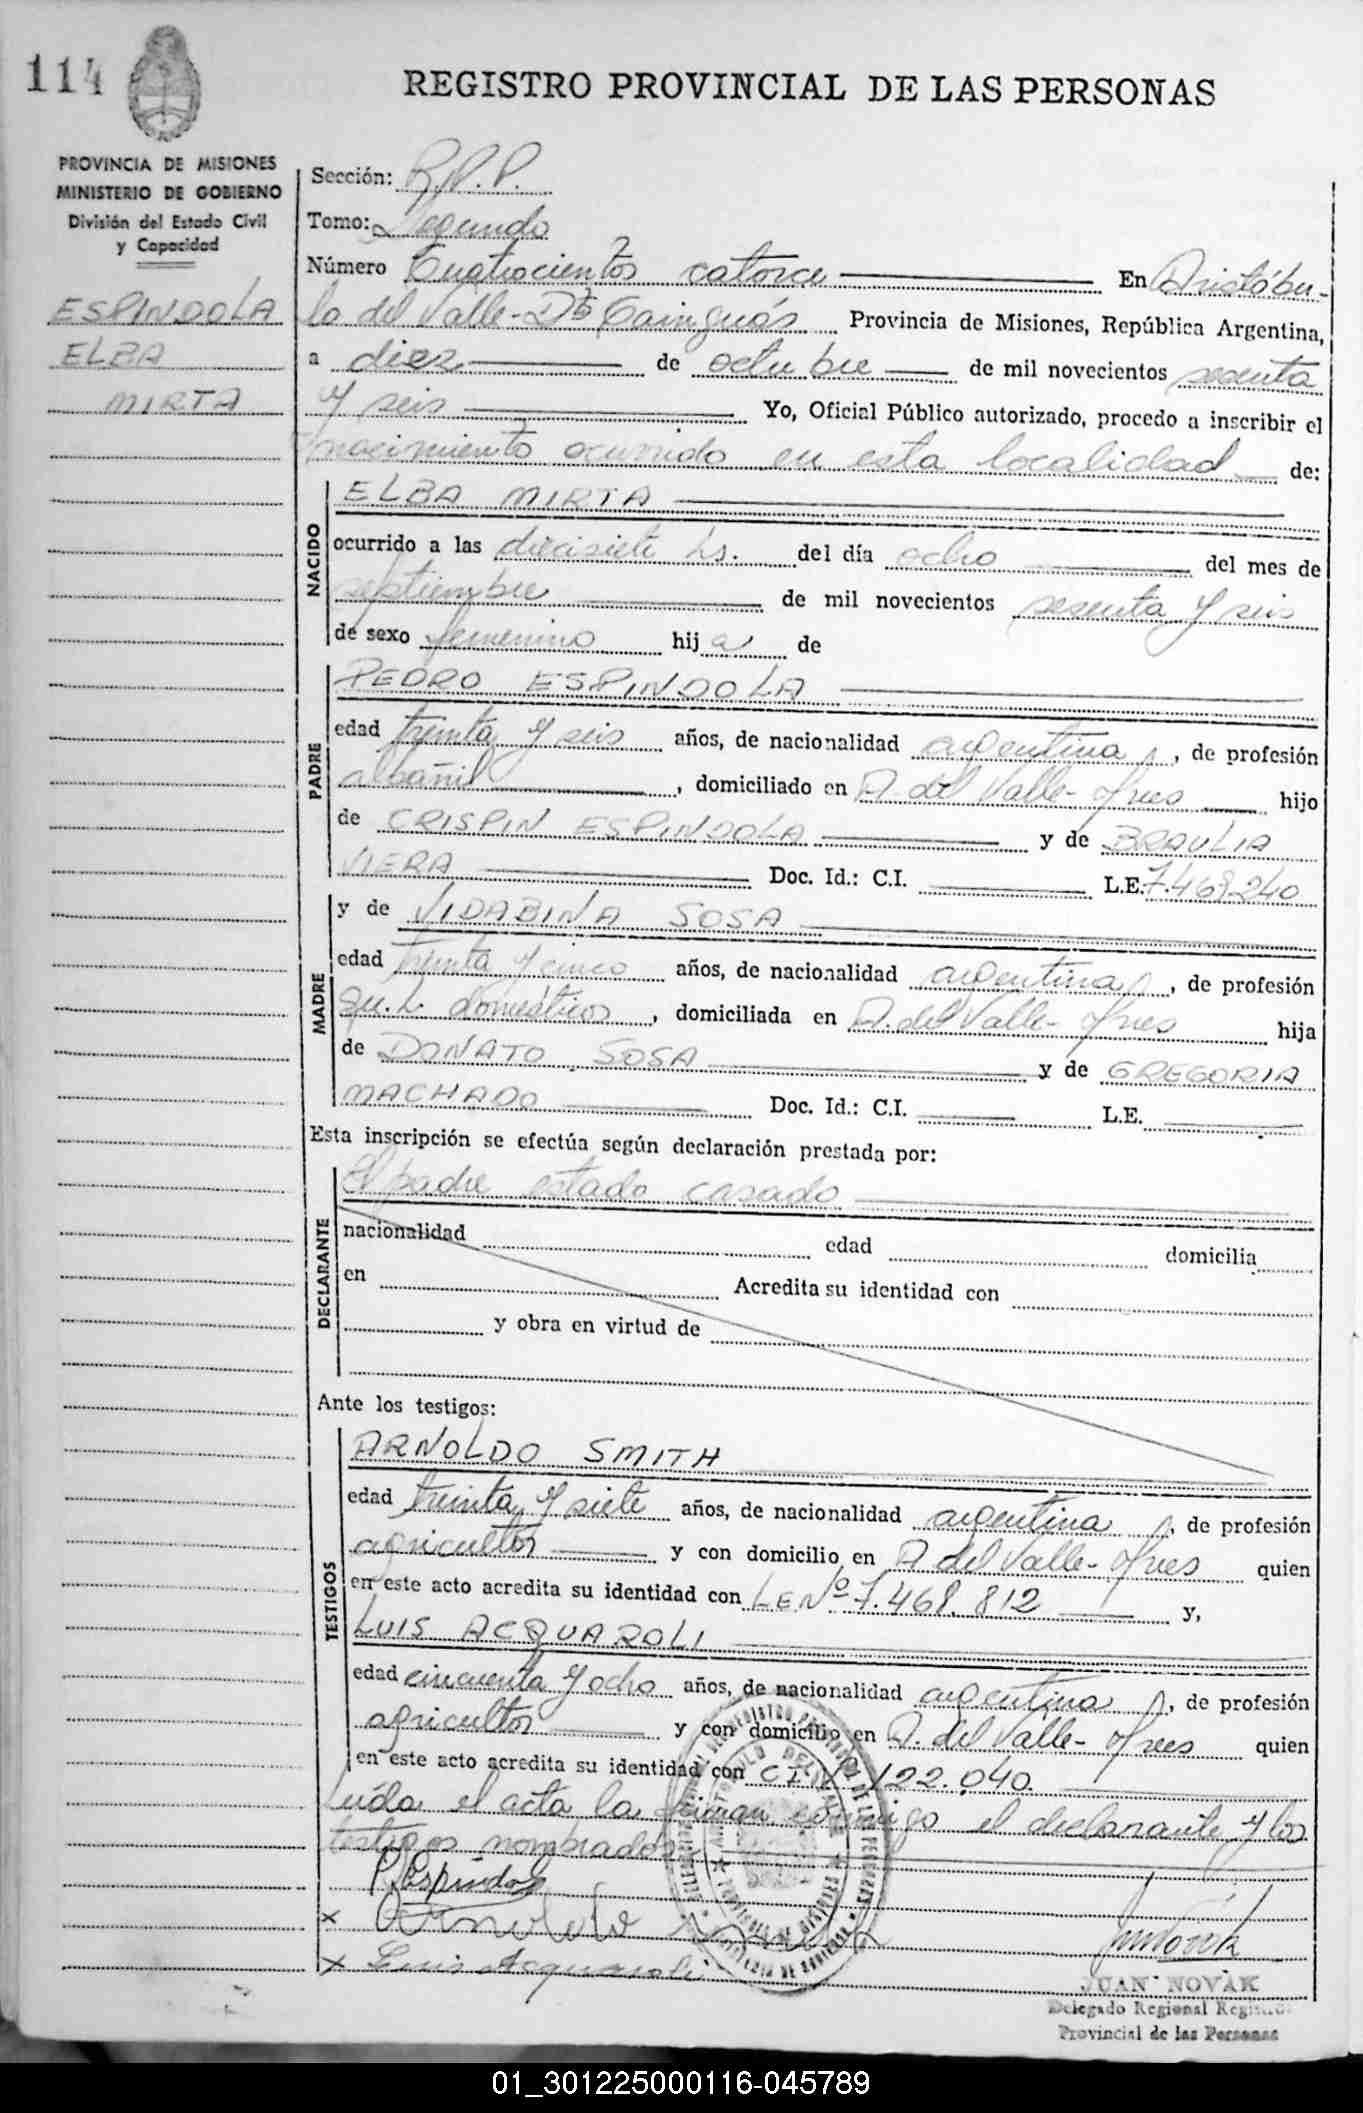 114
REGISTRO PROVINCIAL DE LAS PERSONAS
PROVINCIA DE MISIONES
MINISTERIO DE GOBIERNO
División del Estado Civil
y Capacidad
ESPINDOLA
ELBA
MIRTA
Sección: R.P.P.
Tomo: Segundo
Número Cuatrocientos catorce En Aristóbu-
lo del Valle-Dto Cainguás Provincia de Misiones, República Argentina,
a diez de octubre de mil novecientos sesenta
y seis Yo, Oficial Público autorizado, procedo a inscribir el
nacimiento ocurrido en esta localidad de:
NACIDO
ELBA MIRTA
ocurrido a las diecisiete hs. del día ocho del mes de
septiembre de mil novecientos sesenta y seis
de sexo femenino hija de
PADRE
PEDRO ESPINDOLA
edad treinta y seis años, de nacionalidad argentina, de profesión
albañil, domiciliado en A. del Valle- Mnes hijo
de CRISPIN ESPINDOLA y de BRAULIA
VIERA Doc. Id.: C.I. L.E. 7.468.240
MADRE
y de VIDABINA SOSA
edad treinta y cinco años, de nacionalidad argentina, de profesión
qu. h. domésticos, domiciliada en A. del Valle- Mnes hija
de DONATO SOSA y de GREGORIA
MACHADO Doc. Id.: C.I. L.E.
Esta inscripción se efectúa según declaración prestada por:
DECLARANTE
El padre estado casado
nacionalidad edad domicilia
en Acredita su identidad con
y obra en virtud de
Ante los testigos:
TESTIGOS
ARNOLDO SMITH
edad treinta y siete años, de nacionalidad argentina, de profesión
agricultor y con domicilio en A. del Valle- Mnes quien
en este acto acredita su identidad con LE Nº 7.468.812 y,
LUIS ACQUAROLI
edad cincuenta y ocho años, de nacionalidad argentina, de profesión
agricultor y con domicilio en A. del Valle- Mnes quien
en este acto acredita su identidad con CI Nº 122.040.
Leída el acta la firman conmigo el declarante y los
testigos nombrados
P. Espindola
x Arnoldo
x Luis Acquaroli
JUAN NOVAK
Delegado Regional Registro
Provincial de las Personas
01_301225000116-045789